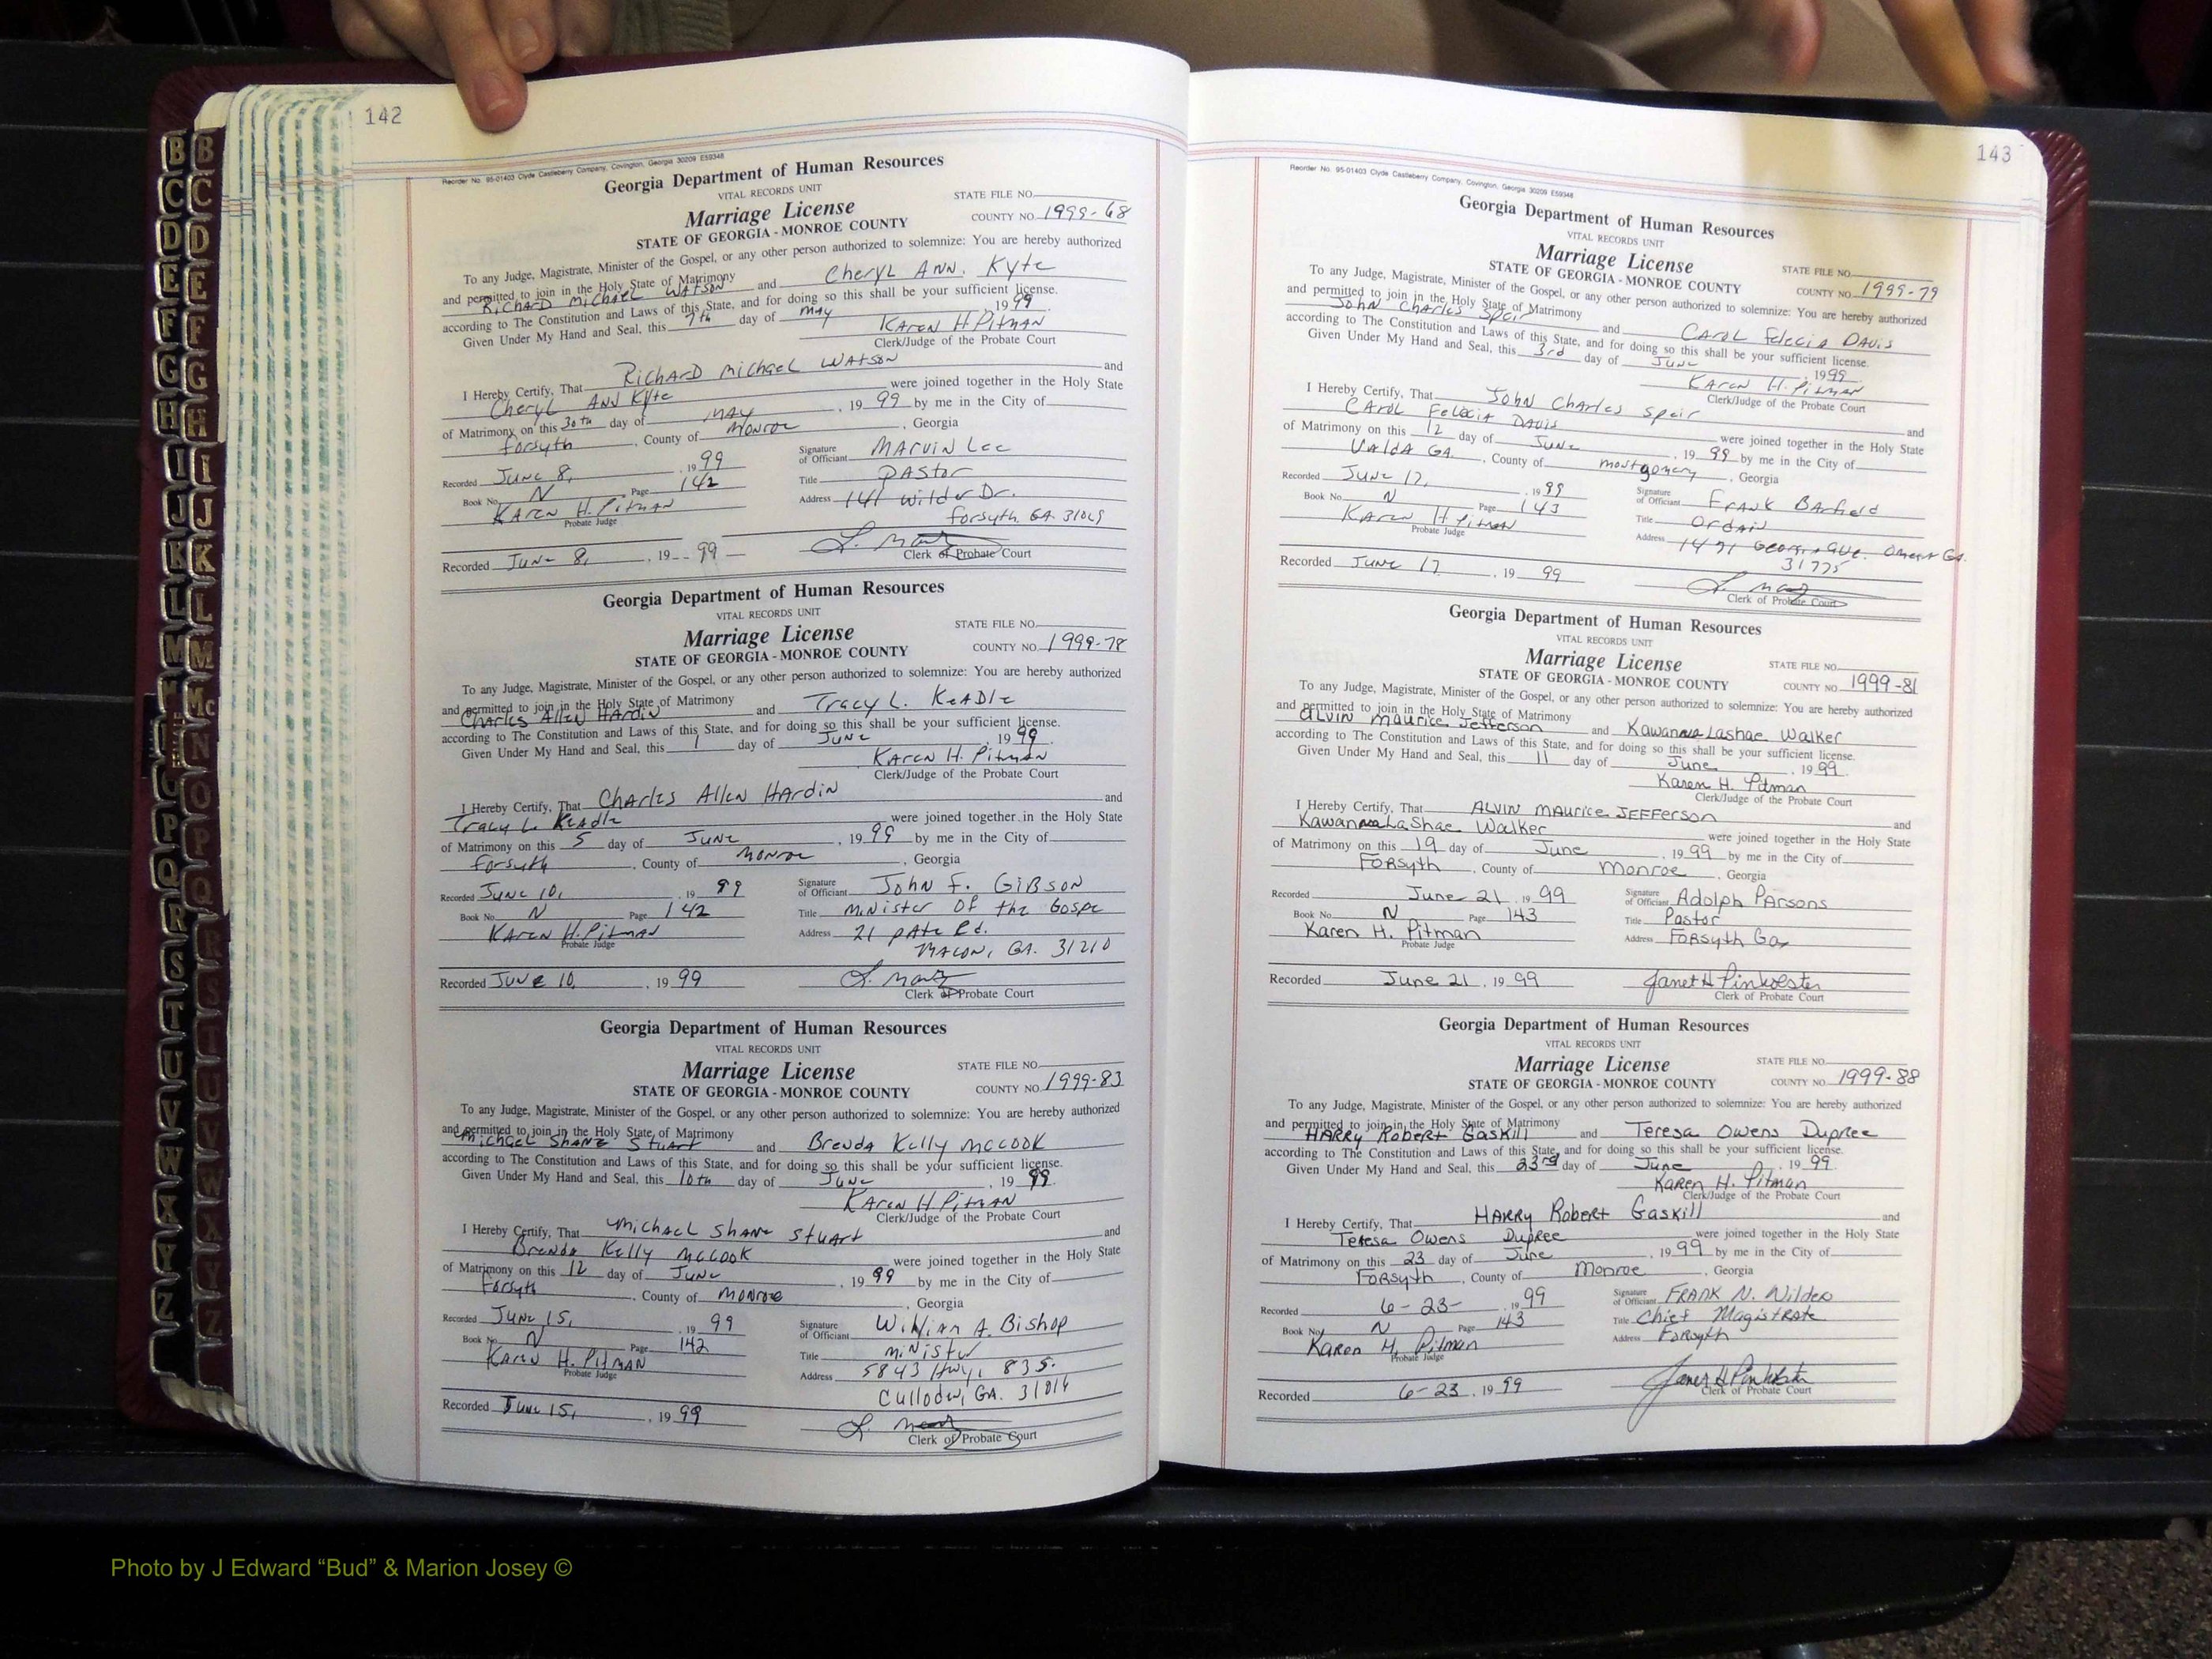 142
Reorder No. 95-01403 Clyde Castleberry Company, Covington, Georgia 30209 E59348
Georgia Department of Human Resources
VITAL RECORDS UNIT
STATE FILE NO.
Marriage License
COUNTY NO. 1999-68
STATE OF GEORGIA - MONROE COUNTY
To any Judge, Magistrate, Minister of the Gospel, or any other person authorized to solemnize: You are hereby authorized
and permitted to join in the Holy State of Matrimony
Richard Michael Watson and Cheryl Ann. Kyte
according to The Constitution and Laws of this State, and for doing so this shall be your sufficient license.
Given Under My Hand and Seal, this 7th day of May 1999.
Karen H Pitman
Clerk/Judge of the Probate Court
I Hereby Certify, That Richard Michael Watson and
Cheryl Ann Kyte were joined together in the Holy State
of Matrimony on this 30th day of May, 1999 by me in the City of
Forsyth, County of Monroe, Georgia
Recorded June 8, 1999 Signature of Officiant Marvin Lee
Book No. N Page 142 Title Pastor
Karen H. Pitman Address 141 Wilder Dr.
Probate Judge Forsyth, GA 31029
Recorded June 8, 1999
Clerk of Probate Court
Georgia Department of Human Resources
VITAL RECORDS UNIT
STATE FILE NO.
Marriage License
COUNTY NO. 1999-78
STATE OF GEORGIA - MONROE COUNTY
To any Judge, Magistrate, Minister of the Gospel, or any other person authorized to solemnize: You are hereby authorized
and permitted to join in the Holy State of Matrimony
Charles Allen Hardin and Tracy L. Keadle
according to The Constitution and Laws of this State, and for doing so this shall be your sufficient license.
Given Under My Hand and Seal, this 1 day of June 1999.
Karen H. Pitman
Clerk/Judge of the Probate Court
I Hereby Certify, That Charles Allen Hardin and
Tracy L. Keadle were joined together in the Holy State
of Matrimony on this 5 day of June, 1999 by me in the City of
Forsyth, County of Monroe, Georgia
Recorded June 10, 1999 Signature of Officiant John F. Gibson
Book No. N Page 142 Title Minister of the Gospe
Karen H. Pitman Address 21 Pate Rd.
Probate Judge Macon, GA. 31210
Recorded June 10, 1999
Clerk of Probate Court
Georgia Department of Human Resources
VITAL RECORDS UNIT
STATE FILE NO.
Marriage License
COUNTY NO. 1999-83
STATE OF GEORGIA - MONROE COUNTY
To any Judge, Magistrate, Minister of the Gospel, or any other person authorized to solemnize: You are hereby authorized
and permitted to join in the Holy State of Matrimony
Michael Shane Stuart and Brenda Kelly McCook
according to The Constitution and Laws of this State, and for doing so this shall be your sufficient license.
Given Under My Hand and Seal, this 10th day of June, 1999.
Karen H Pitman
Clerk/Judge of the Probate Court
I Hereby Certify, That Michael Shane Stuart and
Brenda Kelly McCook were joined together in the Holy State
of Matrimony on this 12 day of June, 1999 by me in the City of
Forsyth, County of Monroe, Georgia
Recorded June 15, 1999 Signature of Officiant William A. Bishop
Book No. N Page 142 Title Minister
Karen H. Pitman Address 5843 Hwy. 83 S.
Probate Judge Culloden, GA. 31016
Recorded June 15, 1999
Clerk of Probate Court
143
Reorder No. 95-01403 Clyde Castleberry Company, Covington, Georgia 30209 E59348
Georgia Department of Human Resources
VITAL RECORDS UNIT
Marriage License
STATE FILE NO.
STATE OF GEORGIA - MONROE COUNTY
COUNTY NO. 1999-79
To any Judge, Magistrate, Minister of the Gospel, or any other person authorized to solemnize: You are hereby authorized
and permitted to join in the Holy State of Matrimony
John Charles Speir and Carol Felecia Davis
according to The Constitution and Laws of this State, and for doing so this shall be your sufficient license.
Given Under My Hand and Seal, this 3rd day of June, 1999.
Karen H. Pitman
Clerk/Judge of the Probate Court
I Hereby Certify, That John Charles Speir and
Carol Felecia Davis were joined together in the Holy State
of Matrimony on this 12 day of June, 1999 by me in the City of
Uvalda GA., County of Montgomery, Georgia
Recorded June 17, 1999 Signature of Officiant Frank Barfield
Book No. N Page 143 Title Ordain
Karen H Pitman Address Georgia Ave. GA.
Probate Judge 31775
Recorded June 17, 1999
Clerk of Probate Court
Georgia Department of Human Resources
VITAL RECORDS UNIT
Marriage License
STATE FILE NO.
STATE OF GEORGIA - MONROE COUNTY
COUNTY NO. 1999-81
To any Judge, Magistrate, Minister of the Gospel, or any other person authorized to solemnize: You are hereby authorized
and permitted to join in the Holy State of Matrimony
Alvin Maurice Jefferson and Kawanna Lashae Walker
according to The Constitution and Laws of this State, and for doing so this shall be your sufficient license.
Given Under My Hand and Seal, this 11 day of June, 1999.
Karen H. Pitman
Clerk/Judge of the Probate Court
I Hereby Certify, That Alvin Maurice Jefferson and
Kawanna LaShae Walker were joined together in the Holy State
of Matrimony on this 19 day of June, 1999 by me in the City of
Forsyth, County of Monroe, Georgia
Recorded June 21, 1999 Signature of Officiant Adolph Parsons
Book No. N Page 143 Title Pastor
Karen H. Pitman Address Forsyth Ga
Probate Judge
Recorded June 21, 1999 Janet H Pinkvester
Clerk of Probate Court
Georgia Department of Human Resources
VITAL RECORDS UNIT
Marriage License
STATE FILE NO.
STATE OF GEORGIA - MONROE COUNTY
COUNTY NO. 1999-88
To any Judge, Magistrate, Minister of the Gospel, or any other person authorized to solemnize: You are hereby authorized
and permitted to join in the Holy State of Matrimony
Harry Robert Gaskill and Teresa Owens Dupree
according to The Constitution and Laws of this State, and for doing so this shall be your sufficient license.
Given Under My Hand and Seal, this 23rd day of June, 1999.
Karen H. Pitman
Clerk/Judge of the Probate Court
I Hereby Certify, That Harry Robert Gaskill and
Teresa Owens Dupree were joined together in the Holy State
of Matrimony on this 23 day of June, 1999 by me in the City of
Forsyth, County of Monroe, Georgia
Recorded 6-23-, 1999 Signature of Officiant Frank N. Wilder
Book No. N Page 143 Title Chief Magistrate
Karen H. Pitman Address Forsyth
Probate Judge
Recorded 6-23, 1999
Clerk of Probate Court
B B
C C
D D
E E
F F
G G
H H
I I
J J
K K
L L
M M
Mc
N
O
P P
Q Q
R R
S S
T T
U U
V V
W W
X X
Y Y
Z Z
Photo by J Edward “Bud” & Marion Josey ©